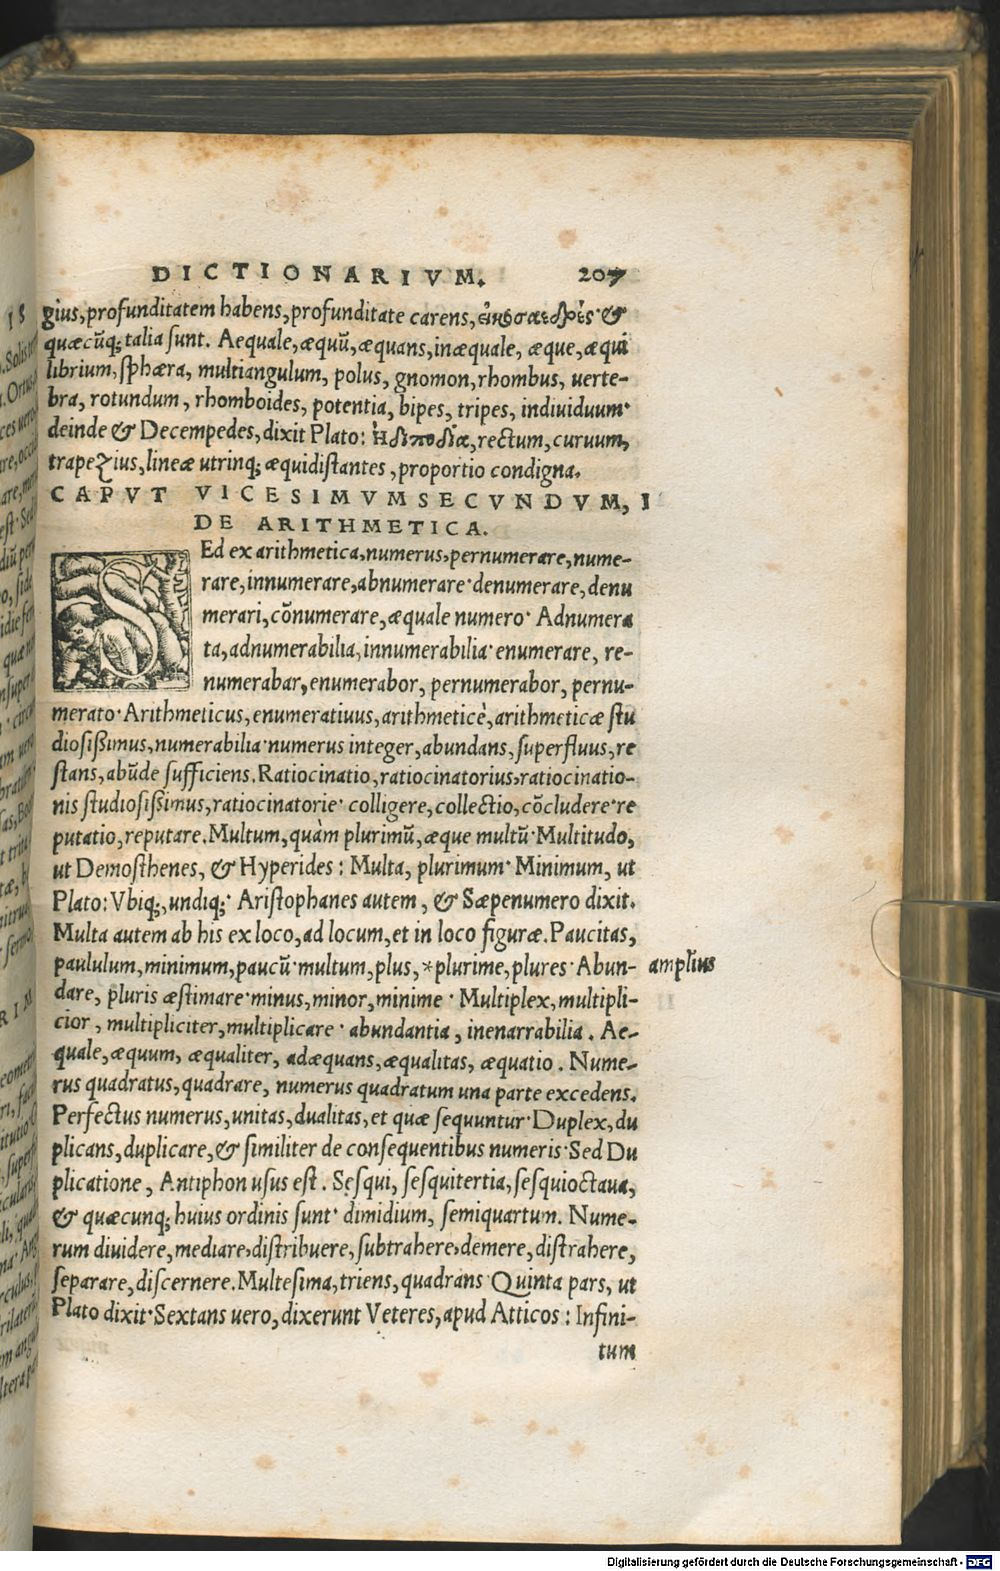 DICTIONARIVM. 207
gius, profunditatem habens, profunditate carens, &
quæcūq; talia sunt. Aequale, æquū, æquans, inæquale, æque, æqui
librium, sphæra, multiangulum, polus, gnomon, rhombus, uerte-
bra, rotundum, rhomboides, potentia, bipes, tripes, indiuiduum·
deinde & Decempedes, dixit Plato: rectum, curuum,
trapezius, lineæ utrinq; æquidistantes, proportio condigna.
CAPVT VICESIMVMSECVNDVM, I
DE ARITHMETICA.
SEd ex arithmetica, numerus, pernumerare, nume-
rare, innumerare, abnumerare· denumerare, denu
merari, cōnumerare, æquale numero· Adnumera
ta, adnumerabilia, innumerabilia· enumerare, re-
numerabar, enumerabor, pernumerabor, pernu-
merato· Arithmeticus, enumeratiuus, arithmeticè, arithmeticæ stu
diosissimus, numerabilia· numerus integer, abundans, superfluus, re
stans, abūde sufficiens. Ratiocinatio, ratiocinatorius, ratiocinatio-
nis studiosissimus, ratiocinatorie· colligere, collectio, cōcludere· re
putatio, reputare. Multum, quàm plurimū, æque multū· Multitudo,
ut Demosthenes, & Hyperides: Multa, plurimum· Minimum, ut
Plato: Vbiq;, undiq;· Aristophanes autem, & Sæpenumero dixit.
Multa autem ab his ex loco, ad locum, et in loco figuræ. Paucitas,
paululum, minimum, paucū· multum, plus, *plurime, plures· Abun- amplius
dare, pluris æstimare· minus, minor, minime· Multiplex, multipli-
cior, multipliciter, multiplicare· abundantia, inenarrabilia. Ae-
quale, æquum, æqualiter, adæquans, æqualitas, æquatio. Nume-
rus quadratus, quadrare, numerus quadratum una parte excedens.
Perfectus numerus, unitas, dualitas, et quæ sequuntur· Duplex, du
plicans, duplicare, & similiter de consequentibus numeris· Sed Du
plicatione, Antiphon usus est. Sesqui, sesquitertia, sesquioctaua,
& quæcunq; huius ordinis sunt· dimidium, semiquartum. Nume-
rum diuidere, mediare, distribuere, subtrahere, demere, distrahere,
separare, discernere. Multesima, triens, quadrans· Quinta pars, ut
Plato dixit· Sextans uero, dixerunt Veteres, apud Atticos: Infini-
tum
Digitalisierung gefördert durch die Deutsche Forschungsgemeinschaft - DFG